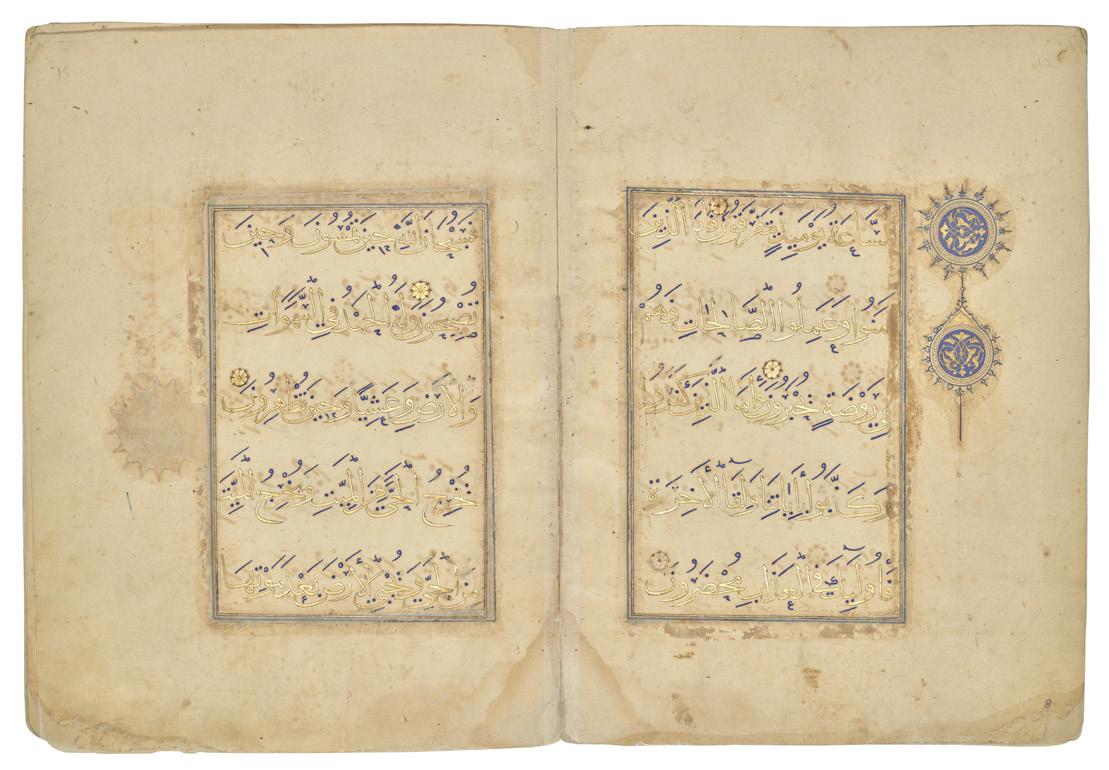 لسَّاعَةُ يَوْمَئِذٍ يَتَفَرَّقُونَ فَأَمَّا الَّذِينَ
مَنُوا وَعَمِلُوا الصَّالِحَاتِ فَهُمْ
فِي رَوْضَةٍ يُحْبَرُونَ وَأَمَّا الَّذِينَ كَفَرُوا
وَكَذَّبُوا بِأَيَاتِنَا وَلِقَآءِ الْأَخِرَةِ
فَأُولَئِكَ فِي الْعَذَابِ مُحْضَرُونَ
8
15
فَسُبْحَانَ اللَّهِ حِينَ تُمْسُونَ وَحِينَ
تُصْبِحُونَ وَلَهُ الْحَمْدُ فِي السَّمَوَاتِ
وَالْأَرْضِ وَعَشِيًّا وَحِينَ تُظْهِرُونَ
يُخْرِجُ الْحَيَّ مِنَ الْمَيِّتِ وَيُخْرِجُ الْمَيِّتَ
مِنَ الْحَيِّ وَيُحْيِي الْأَرْضَ بَعْدَ مَوْتِهَا